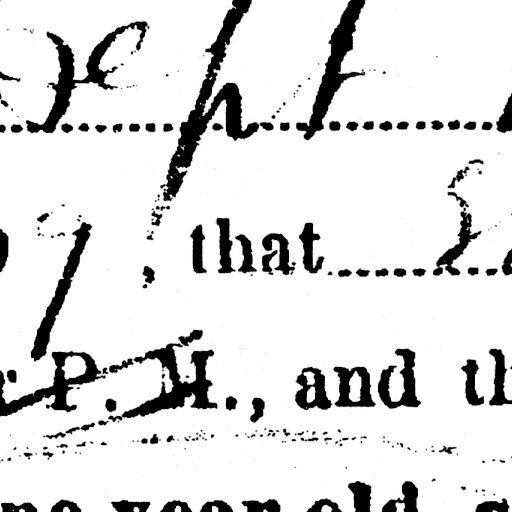 Sept
9, that
P. M., and th
year old